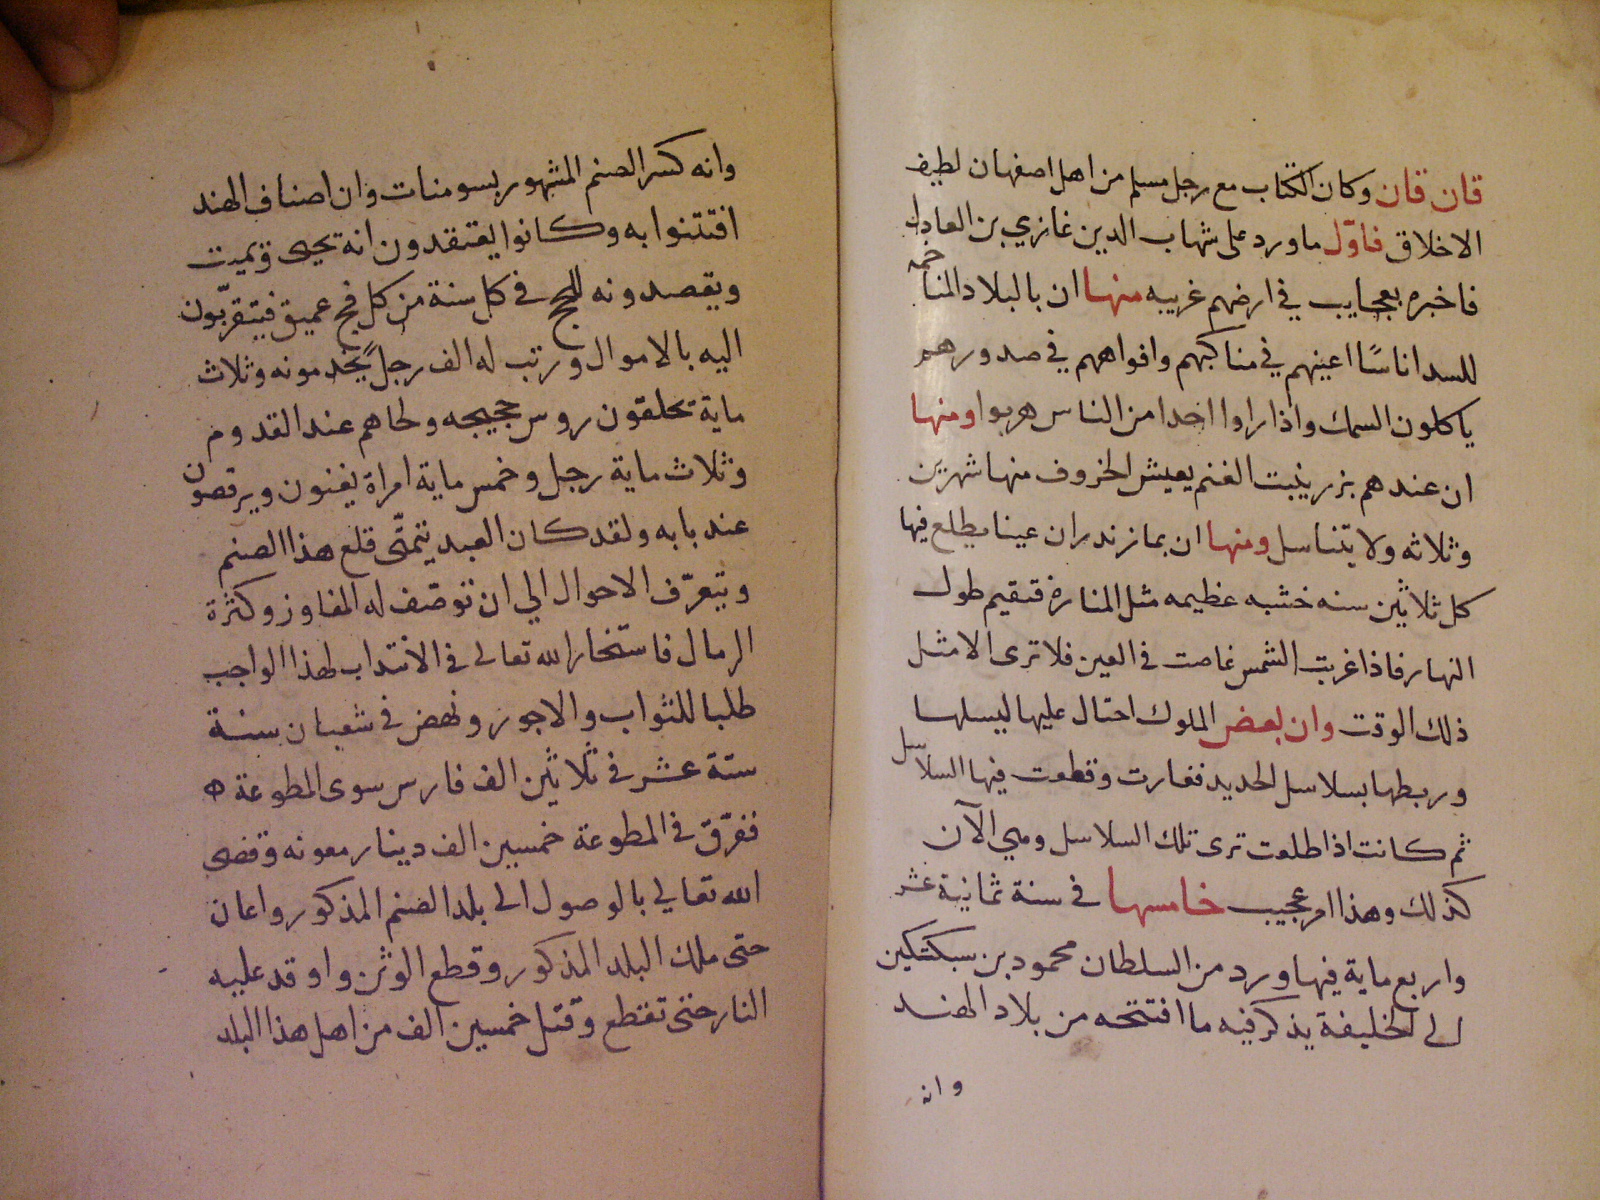 قان قان وكان الكتاب مع رجل مسلم من اهل اصفهان لطيف
الاخلاق فاوّل ما ورد على شهاب الدين غازي بن العادل
فاخبره بعجايب في ارضهم غريبه منها ان بالبلاد المناخمه
للسد اناسًا اعينهم في مناكبهم وافواههم في صدورهم
ياكلون السمك واذا راوا احدا من الناس هربوا ومنها
ان عندهم بزر ينبت الغنم يعيش الخروف منها شهرين
وثلاثه ولا يتناسل ومنها ان بمازندران عينا يطلع فيها
كل ثلاثين سنه خشبه عظيمه مثل المنارة فتقيم طول
النهار فاذا غربت الشمس غاصت في العين فلا ترى الا مثل
ذلك الوقت وان بعض الملوك احتال عليها ليسلها
وربطها بسلاسل الحديد فغارت وقطعت فيها السلاسل
ثم كانت اذا طلعت ترى تلك السلاسل وهي الآن
كذلك وهذا امر عجيب خامسها في سنة ثمانية عشر
واربع ماية فيها ورد من السلطان محمود بن سبكتكين
الى الخليفة يذكر فيه ما افتتحه من بلاد الهند
وانه
وانه كسر الصنم المشهور بسومنات وان اصناف الهند
افتتنوا به وكانوا يعتقدون انه يحيى ويميت
ويقصدونه للحج في كل سنة من كل فج عميق فيتقرّبون
اليه بالاموال ورتب له الف رجل يخدمونه وثلاث
ماية تحلقون روس حجيجه ولحاهم عند القدوم
وثلاث ماية رجل وخمس ماية امراة يغنون ويرقصون
عند بابه ولقد كان العبد يتمنّى قلع هذا الصنم
ويتعرّف الاحوال الي ان توصف له المفاوز وكثرة
الرمال فاستخار الله تعالى في الانتداب لهذا الواجب
طلبا للثواب والاجور ونهض في شعبان سنة
ستة عشر في ثلاثين الف فارس سوى المطوعة
ففرّق في المطوعة خمسين الف دينار معونه وقضى
الله تعالي بالوصول الى بلد الصنم المذكور واعان
حتى ملك البلد المذكور وقطع الوثن واوقد عليه
النار حتى تقطع وقتل خمسين الف من اهل هذا البلد